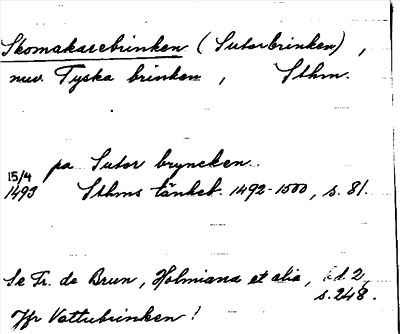 Skomakarebrinken (Sutorbrinken),
nuv. Tyska brinken, Sthm.
pa Sutor bryncken.
15/4
1493 Sthms tänkeb. 1492-1500, s. 81.
Se Fr. de Brun, Holmiana et alia, bd. 2,
s. 248.
Jfr Vattubrinken!